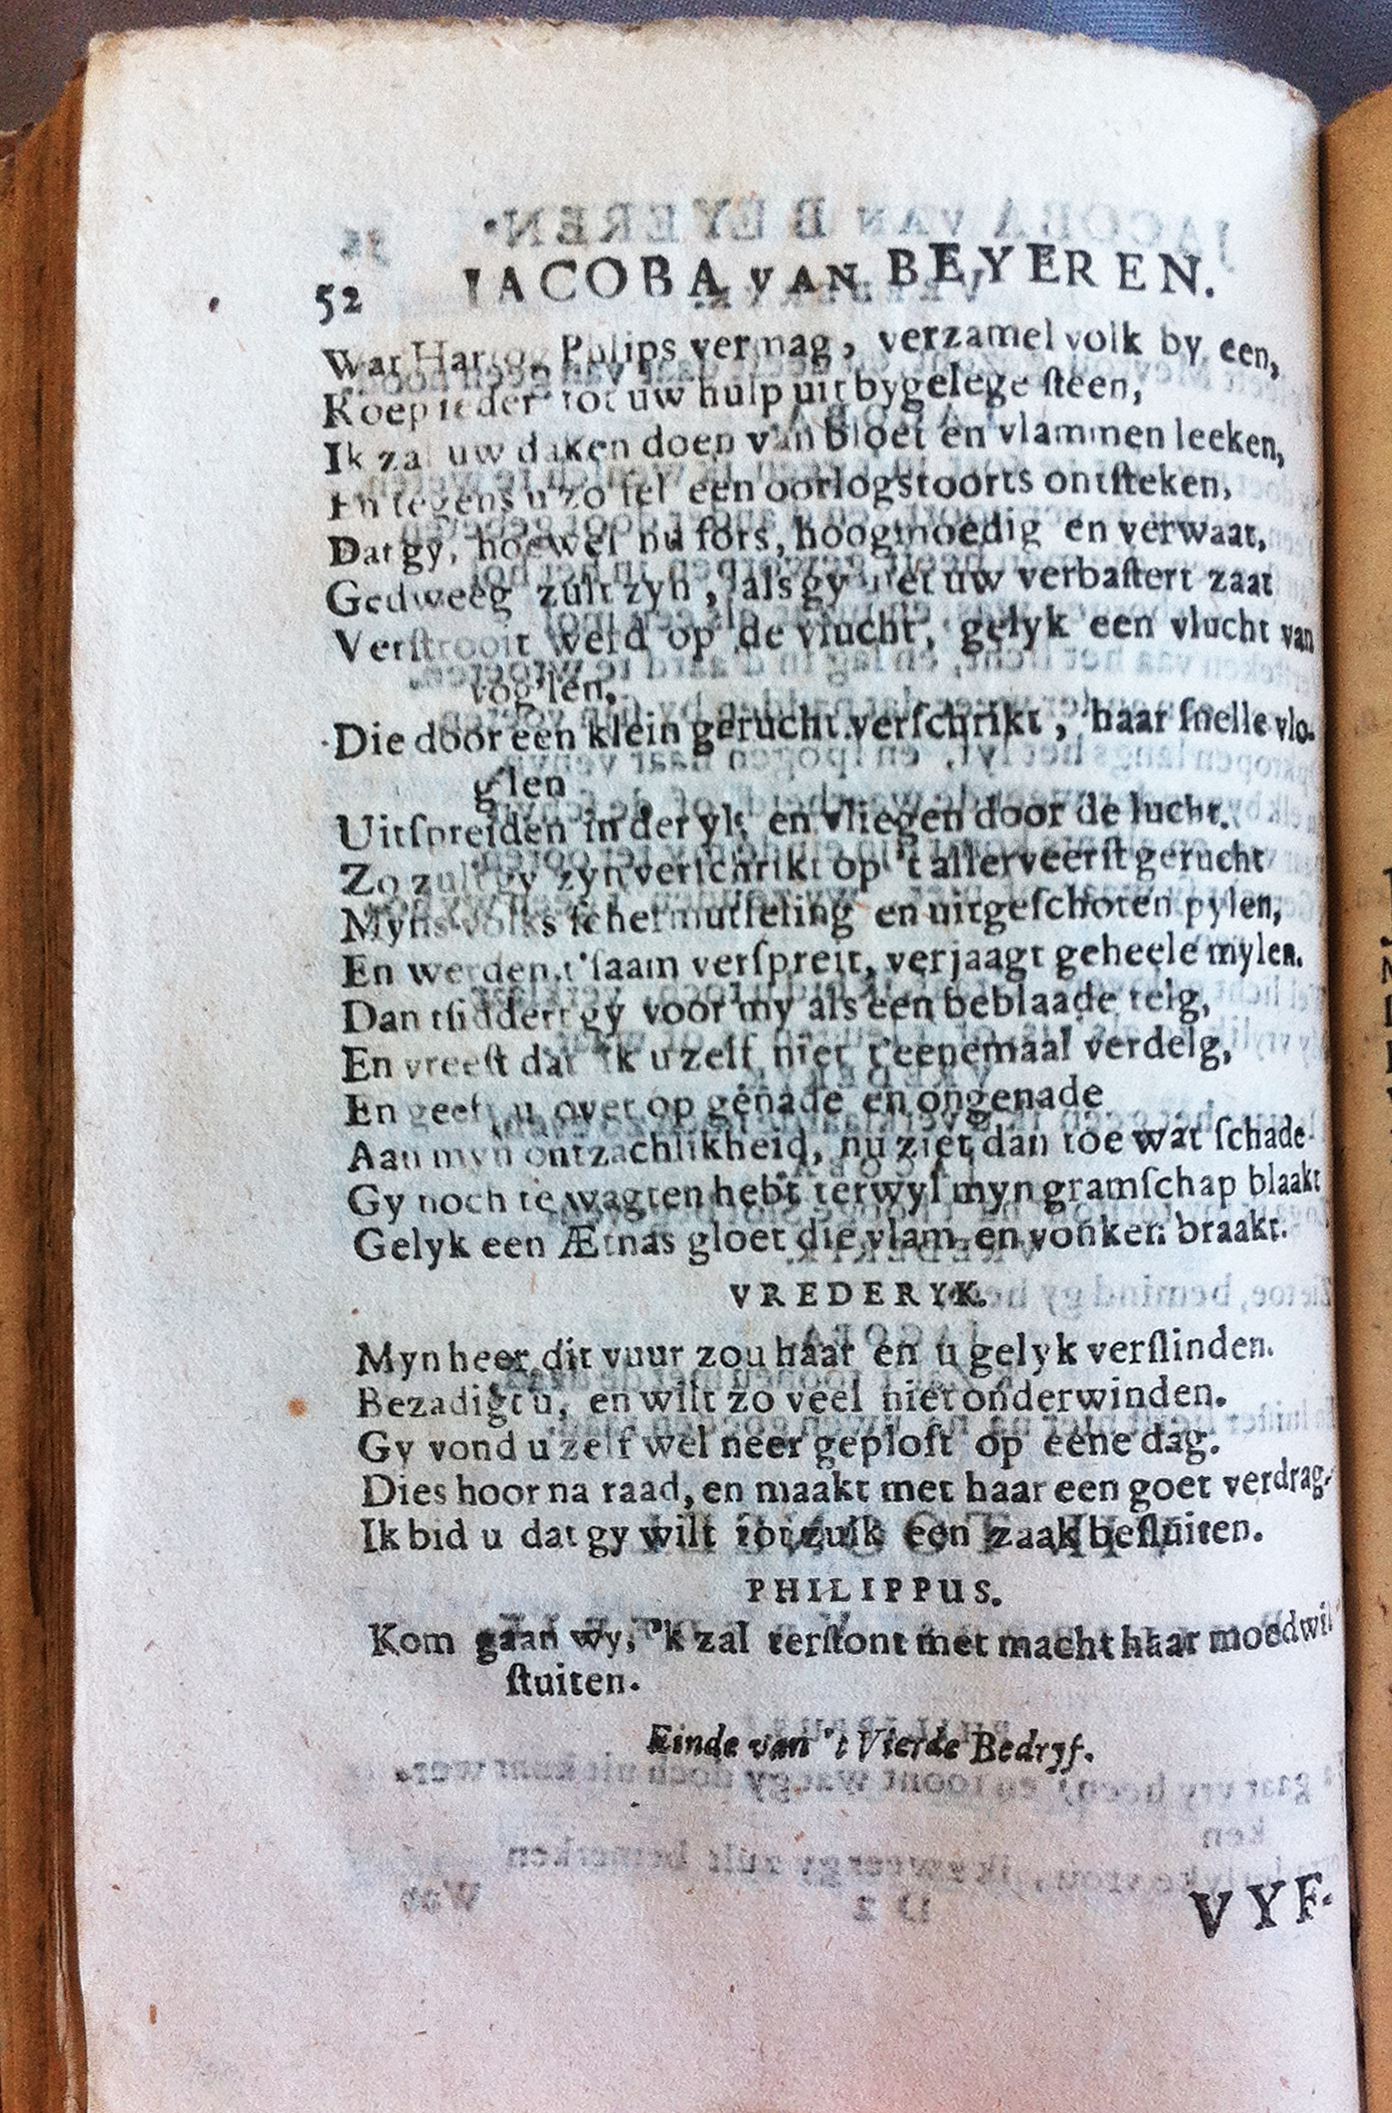 52 JACOBA VAN BEYEREN.
Wat Hartog Philips vermag, verzamel volk by een,
Roep ieder tot uw hulp uit bygelege ſteen,
Ik zal uw daken doen van bloet en vlammen leeken,
En tegens u zo fel een oorlogstoorts ontſteken,
Dat gy, hoewel nu fors, hoogmoedig en verwaat,
Gedweeg zult zyn, als gy met uw verbaſtert zaat
Verſtrooit werd op de vlucht, gelyk een vlucht van
vog'len,
Die door een klein gerucht verſchrikt, haar ſnelle vlo-
g'len
Uitſpreiden in der yl, en vliegen door de lucht.
Zo zult gy zyn verſchrikt op 't allerveerſt gerucht
Myns volks ſchermutſeling en uitgeſchoten pylen,
En werden t'ſaam verſpreit, verjaagt geheele mylen.
Dan tſiddert gy voor my als een beblaade telg,
En vreeſt dat ik u zelf niet t'eenemaal verdelg,
En geeft u over op genade en ongenade
Aan myn ontzachlikheid, nu ziet dan toe wat ſchade
Gy noch te wagten hebt terwyl myn gramſchap blaakt
Gelyk een Ætnas gloet die vlam en vonken braakt.
VREDERYK.
Myn heer dit vuur zou haar en u gelyk verſlinden.
Bezadigt u, en wilt zo veel niet onderwinden.
Gy vond u zelf wel neer geploft op eene dag.
Dies hoor na raad, en maakt met haar een goet verdrag.
Ik bid u dat gy wilt tot zulk een zaak beſluiten.
PHILIPPUS.
Kom gaan wy, 'k zal terſtont met macht haar moedwil
ſtuiten.
Einde van 't Vierde Bedryf.
VYF-